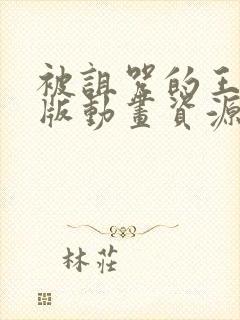 被詛咒的王
版動畫資源
林莊